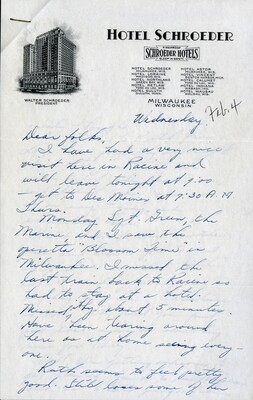 HOTEL SCHROEDER
SCHROEDER HOTELS
HOTEL SCHROEDER
MILWAUKEE, WIS.
HOTEL ASTOR
MILWAUKEE, WIS.
HOTEL LORAINE
MADISON, WIS.
HOTEL VINCENT
HOTEL NORTHLAND
GREEN BAY, WIS.
HOTEL CALUMET
FOND DU LAC, WIS.
HOTEL DULUTH
DULUTH, MINN.
HOTEL INDIANA
WABASH, IND.
WALTER SCHROEDER
PRESIDENT
MILWAUKEE
WISCONSIN
Wednesday
Feb. 4
Dear folks,
I have had a very nice
visit here in Racine and
will leave tonight at 9:00
- get to Des Moines at 7:30 A.M
Thurs.
Monday Sgt. Green, the
Marine, and I saw the
operetta "Blossom Time" in
Milwaukee. I missed the
last train back to Racine so
had to stay at a hotel.
Missed by about 5 minutes.
Have been tearing around
here as at home seeing every-
one.
Ruth seems to feel pretty
good. Still loses some of her